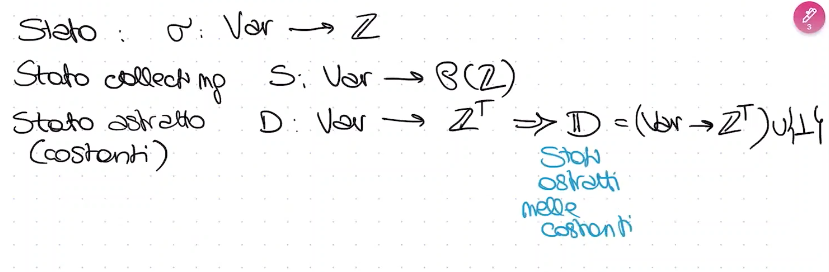 Stato : σ: Var → ℤ
Stato collecting S: Var → ℘(ℤ)
Stato astratto D: Var → ℤ^T ⇒ 𝔻 = (Var → ℤ^T) ∪ {⊥}
(costanti)
Stati
astratti
nelle
costanti
3